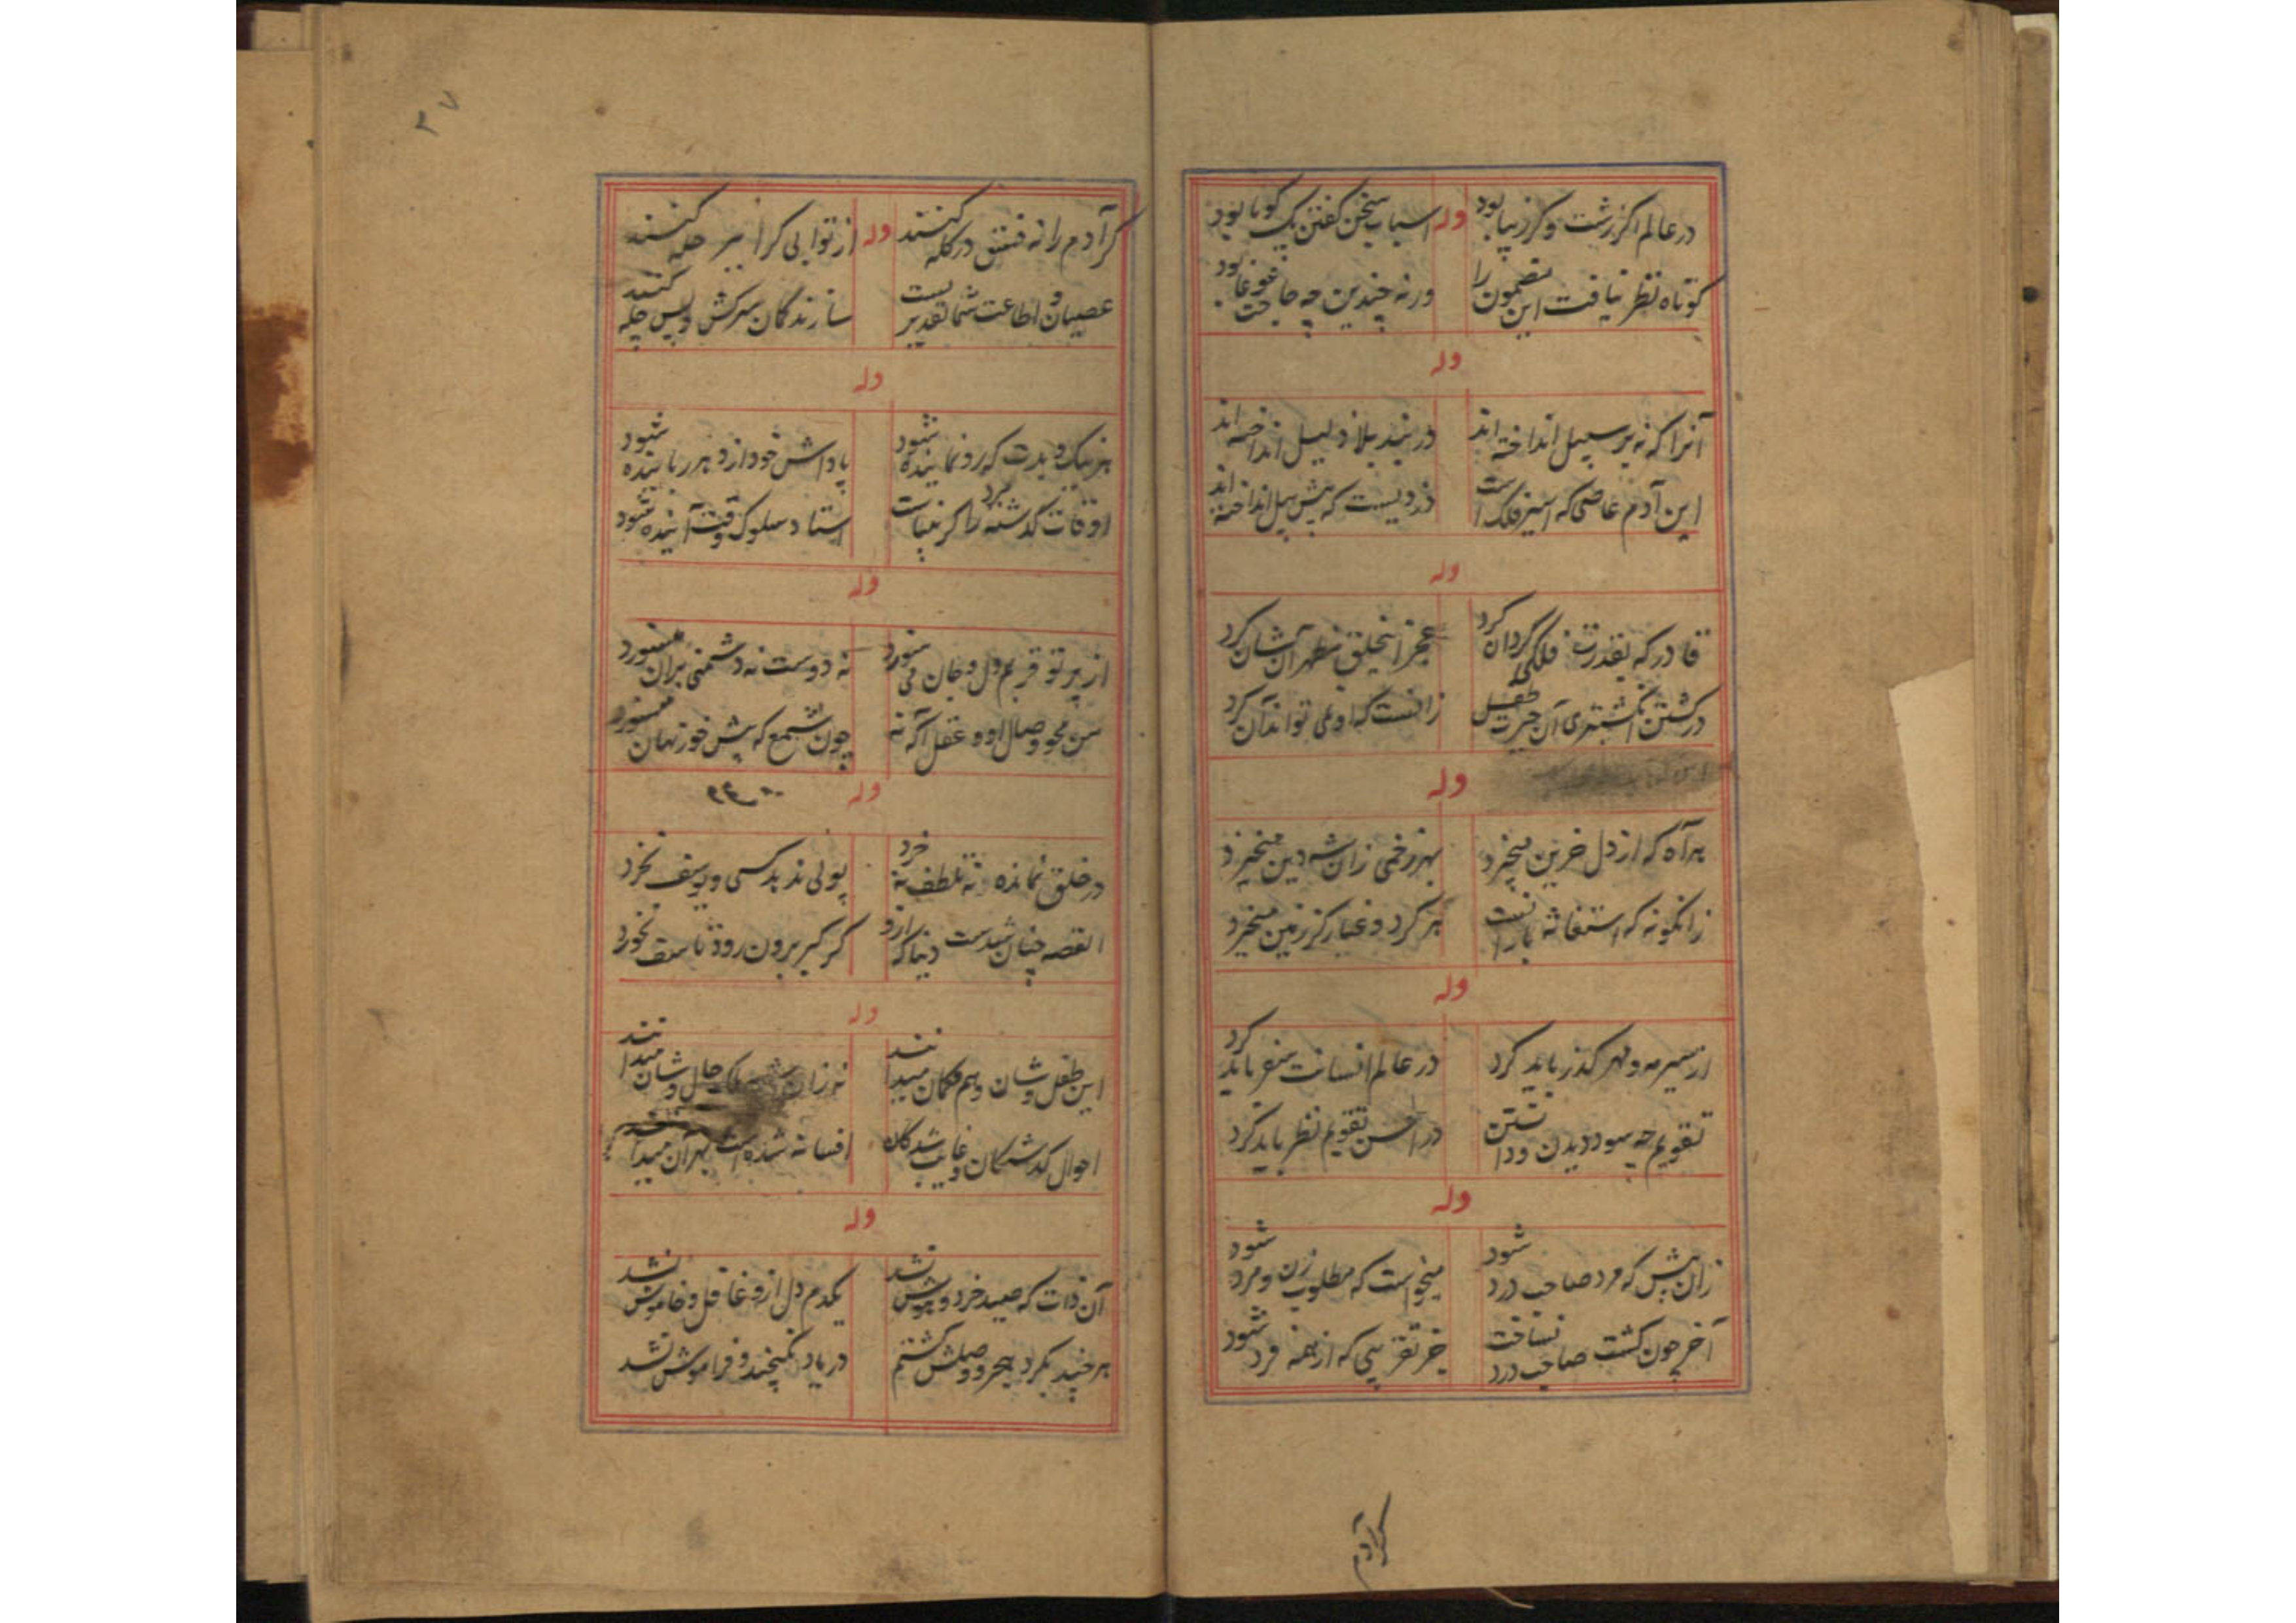 در عالم اکر زشت و کر زیبا بود وله اسباب سخن کفتن یک کویا بود
کوتاه نظر نیافت این مضمون را ورنه چندین چه حاجت غوغا بود
وله
آنرا که نه بر سبیل انداخته اند در بند بلا ذلیل انداخته اند
این آدم عاصی که اسیر فلک است دزدیست که پیش پیل انداخته اند
وله
قادر که بقدرت فلکی کردان کرد عجز از خلق مظهر آن شان کرد
در کشتن انکشتری آن حیرت طفل زانست که او نمی تواند آن کرد
وله
هر آه که از دل حزین میخیزد بهر زخمی زان شه دین میخیزد
زانکونه که استغاثه بارانست هر کرد و غبار کز زمین میخیزد
وله
از سیر مه و مهر کذر باید کرد در عالم انسانت سفر باید کرد
تقویم چه سود دیدن و داشتن در احسن تقویم نظر باید کرد
وله
زان پیش که مرد صاحب درد شود میخواست که مطلوب زن و مرد شود
آخر چون کشت صاحب درد شناخت جز تفرّ یی که از همه فرد شود
کر آدم
۳۷
کر آدم را نه فسق در کله کنند وله از توابی کرا ببر حله کنند
عصیان و اطاعت شما تقدیریست سازندکان سرکش و پس چله کنند
وله
هر نیک و بدت که رونماینده شود پاداش خود از دهر رباینده شود
اوقات کذشته را کر نبیاست مرد استاد سلوک وقت آینده شود
وله
از پرتو قربم دل و جان می سوزد نه دوست نه دشمنی بران میسوزد
من محو وصال او و عقل آکه نه چون شمع که پیش خور نهان میسوزد
وله
در خلق نمانده نه تلطف نه خرد پولی ندهد کسی و یوسف نخرد
القصه چنان شدست دنیا که ازو کر کیر برون رود تاسف نخورد
وله
این طفل وشان وهم مکان میدانند نه زان حال وشان میدانند
احوال کذشتکان و غایب شدکان افسانه شده است بهر آن میدانند
وله
آن ذات که صید خرد و هوش نشد یکدم دل ازو غافل و خاموش نشد
هر چند بکرد هجر و وصلش کشتم در یاد نکنجید و فراموش نشد